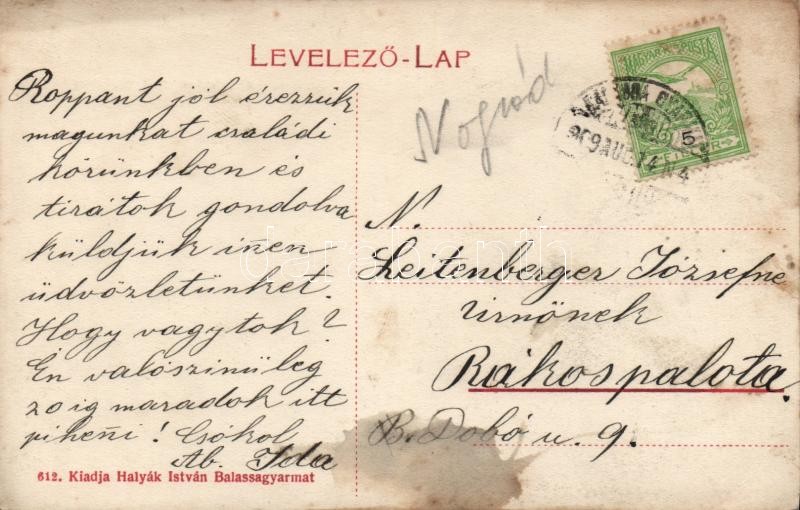 LEVELEZŐ-LAP
Roppant jól érezzük
magunkat családi
körünkben és
tirátok gondolva
küldjük inen
üdvözletünket.
Hogy vagytok?
Én valószinüleg
20 ig maradok itt
piheni! Csókol
Ida
612. Kiadja Halyák István Balassagyarmat
Nográd
MAGYAR POSTA
5
909 AUG 14
N.
Leitenberger Józsefne
Urnőnek
Rákospalota.
B. Dobó u. 9.
darabanth